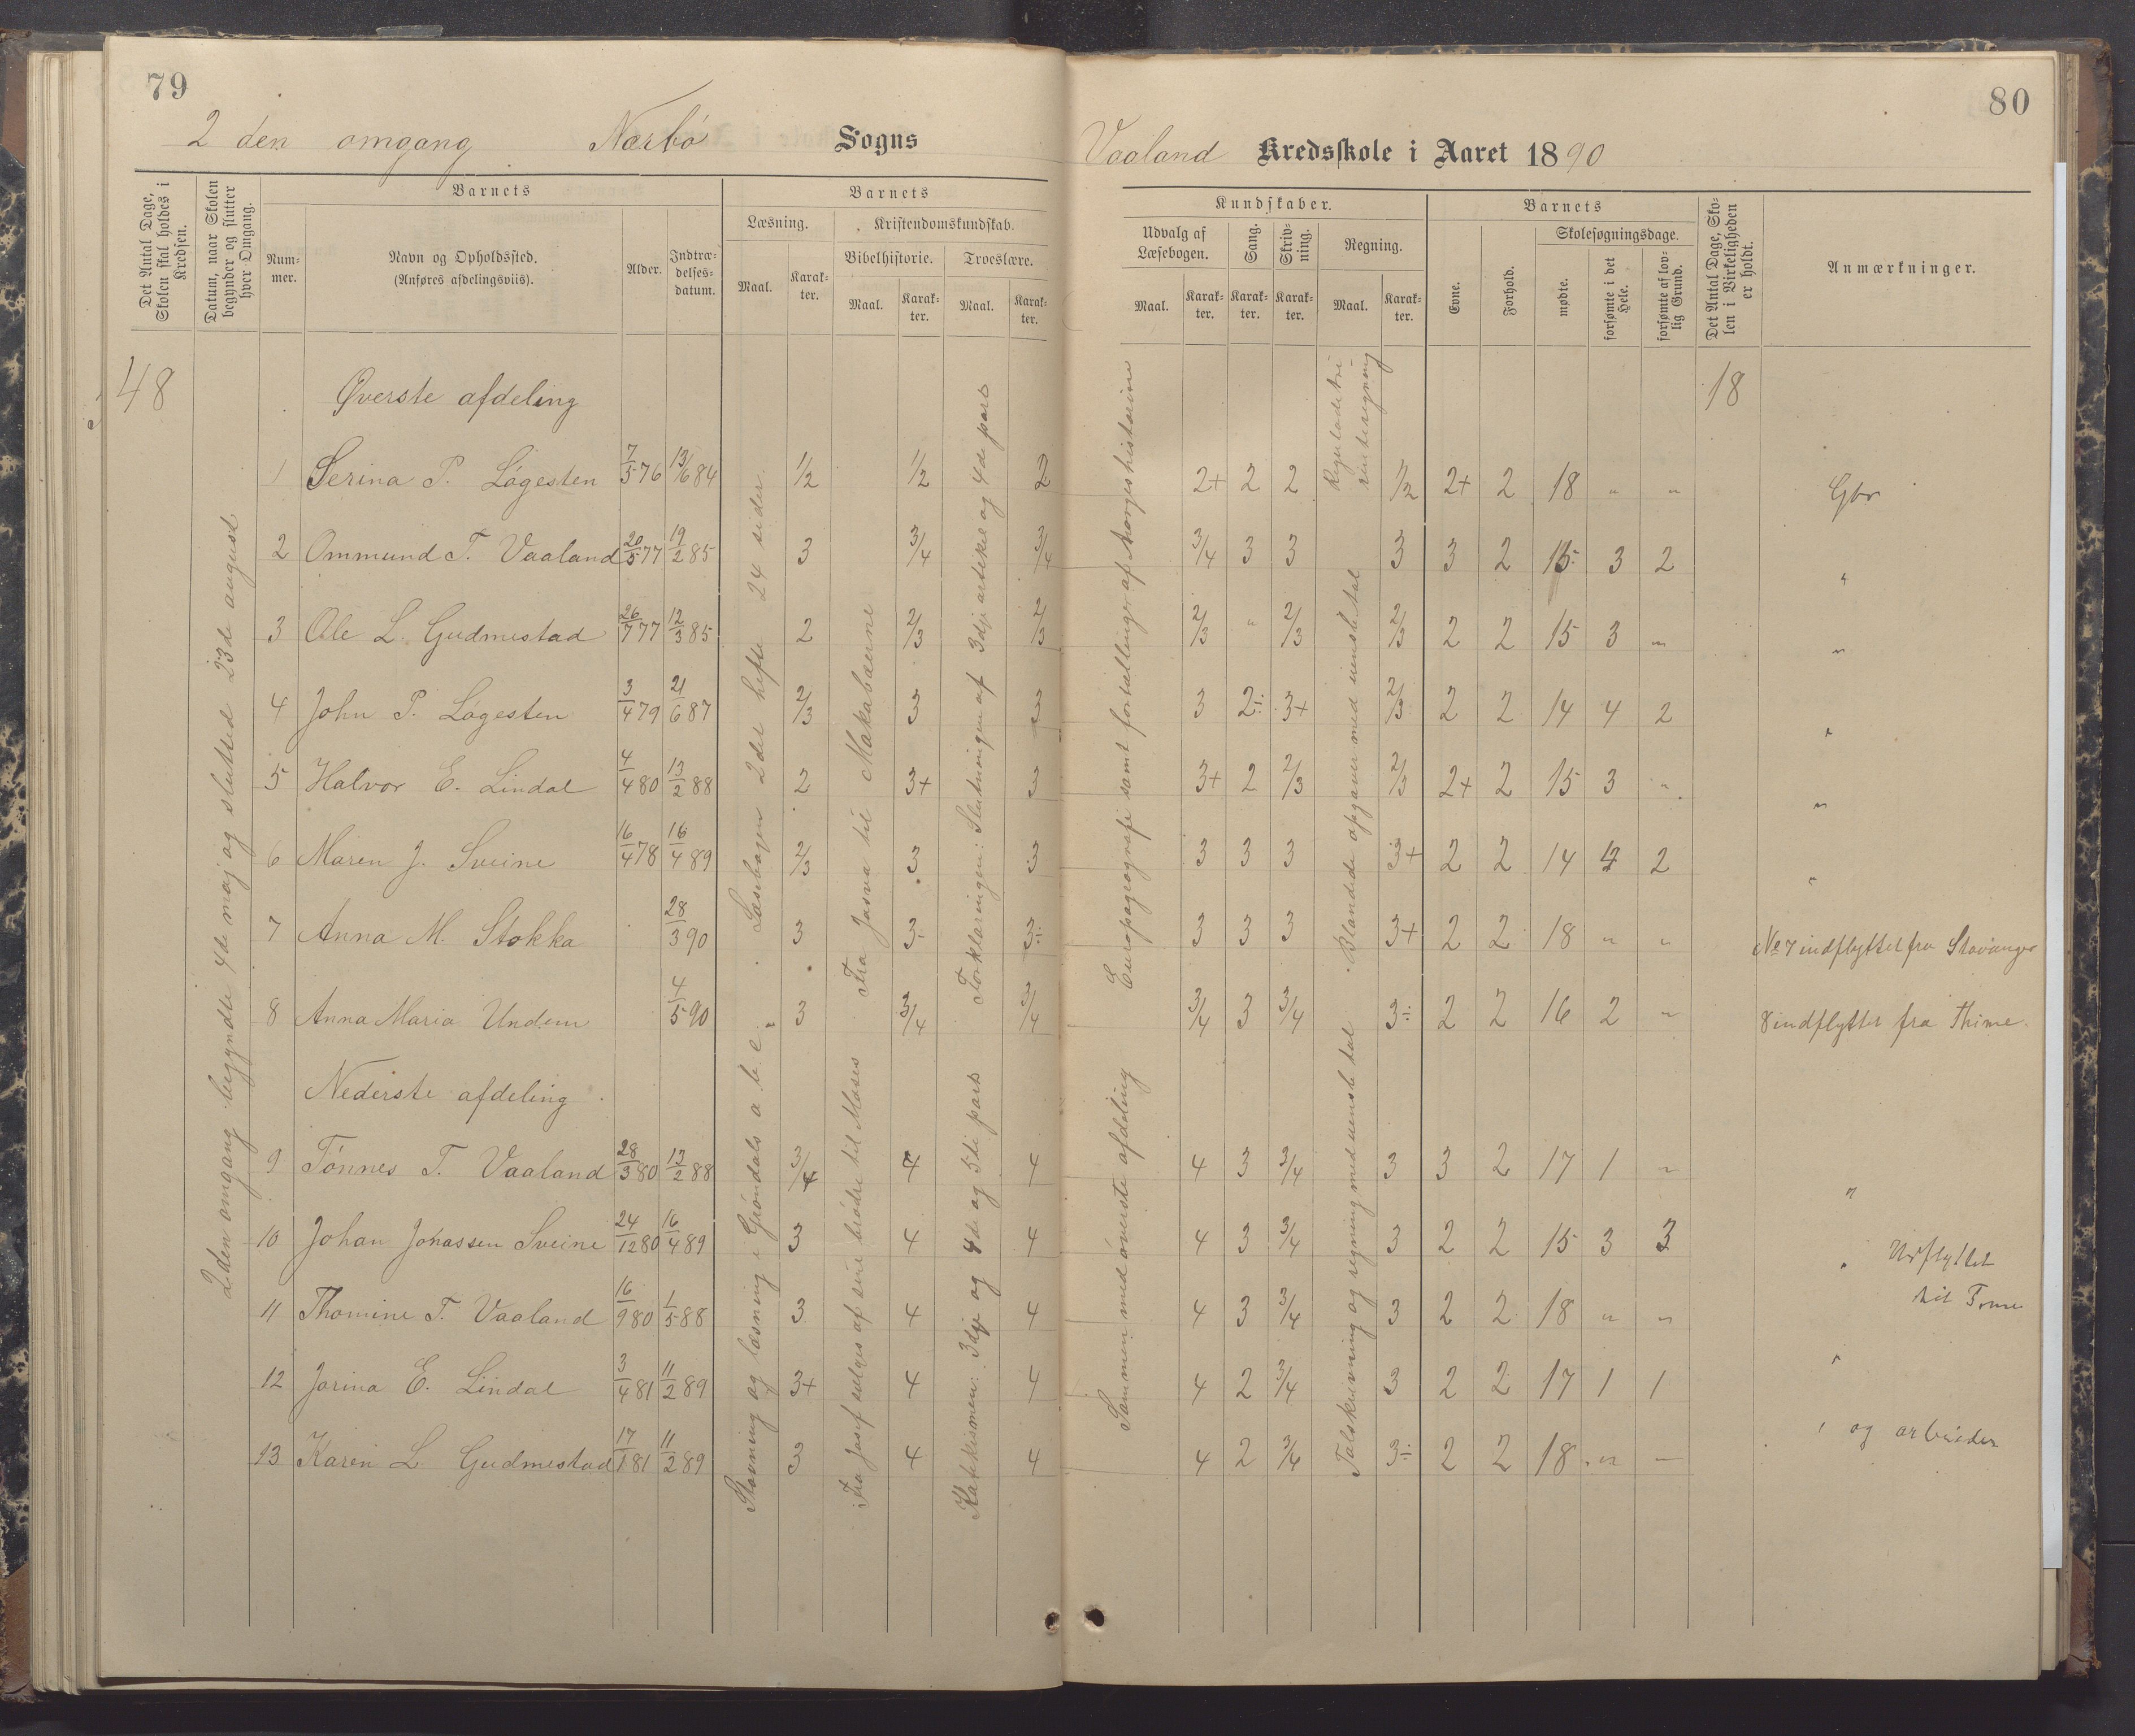 79
2 den omgang Nærbö Sogns
Det Antal Dage, Skolen skal holdes i Kredsen.
Datum, naar Skolen begynder og slutter hver Omgang.
Barnets
Nummer.
Navn og Opholdssted.
(Anføres afdelingsviis).
Alder.
Indtrædelsesdatum.
Barnets
Læsning.
Maal.
Karakter.
Kristendomskundskab.
Bibelhistorie.
Maal.
Karakter.
Troeslære.
Maal.
Karakter.
48
2den omgang begyndte 4de maj og slutted 23de august
Øverste afdeling
1 Serina P. Lögesten 7/5 76 13/6 84 1/2 1/2 2
2 Ommund T. Vaaland 20/5 77 19/2 85 3 3/4 3/4
3 Ole L. Gudmestad 26/7 77 12/3 85 2 2/3 2/3
4 John P. Lögesten 3/4 79 21/6 87 2/3 3 3
5 Halvor E. Lindal 4/4 80 13/2 88 2 3+ 3
6 Maren J. Sveine 16/4 78 16/4 89 2/3 3 3
7 Anna M. Stokka 28/3 90 3 3÷ 3÷
8 Anna Maria Undem 4/5 90 3 3/4 3/4
Nederste afdeling
9 Tönnes T. Vaaland 28/3 80 13/2 88 3/4 4 4
10 Johan Jonassen Sveine 24/12 80 16/4 89 3 4 4
11 Thomine T. Vaaland 16/9 80 1/5 88 3 4 4
12 Jorina E. Lindal 3/4 81 11/2 89 3+ 4 4
13 Karen L. Gudmestad 17/1 81 11/2 89 3 4 4
Læsebogen 2det hefte 24 sider
Stavning og læsning i Gröndals a. b. c.
Fra Josva til Makabæerne
Fra Josef sælges af sine brödre til Moses
Forklaringen: Slutningen af 3dje artikel og 4de part
Katekismen: 3dje og 4de og 5te part
80
Vaaland Kredsskole i Aaret 1890
Kundskaber.
Udvalg af Læsebogen.
Maal.
Karakter.
Sang.
Karakter.
Skrivning.
Karakter.
Regning.
Maal.
Karakter.
Barnets
Evne.
Forhold.
Skolesøgningsdage.
mødte.
forsømte i det Hele.
forsømte af lovlig Grund.
Det Antal Dage, Skolen i Virkeligheden er holdt.
Anmærkninger.
18
2+ 2 2 1/2 2+ 2 18 " " Gbr
3/4 3 3 3 3 2 15 3 2 "
2/3 " 2/3 2/3 2 2 15 3 " "
3 2÷ 3+ 2/3 2 2 14 4 2 "
3+ 2 2/3 2/3 2+ 2 15 3 " "
3 3 3 3+ 2 2 14 4 2 "
3 3 3 3+ 2 2 18 " " No 7 indflyttet fra Stavanger
3/4 3 3/4 3÷ 2 2 16 2 " 8 indflyttet fra Thime
4 3 3/4 3 3 2 17 1 " "
4 3 3/4 3 2 2 15 3 3 " Udflyttet
til Time
4 3 3/4 3 2 2 18 " "
4 2 3/4 3 2 2 17 1 1 "
4 2 3/4 3÷ 2 2 18 " — " og arbeider
Europageografi samt fortællinger af Norgeshistorine
Sammen med överste afdeling
Reguladetri
renteregning
Blandede opgaver med uensbetal
Talskrivning og regning med uensbe tal